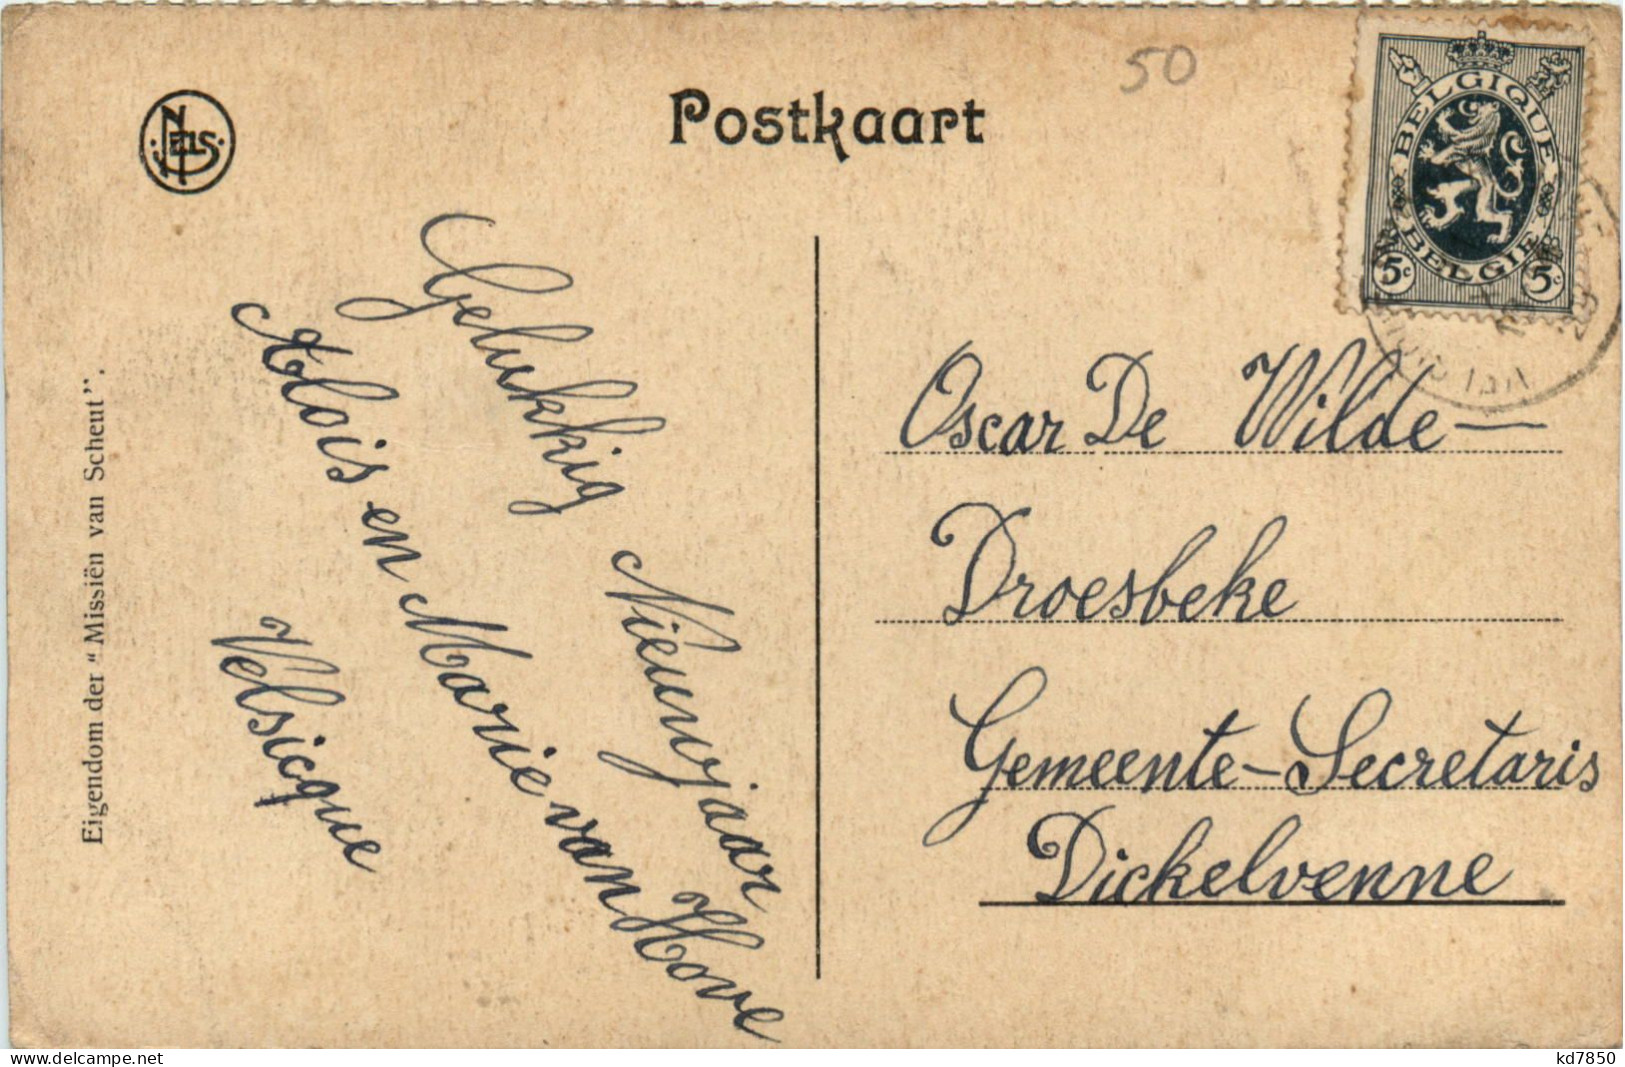 NELS
Postkaart
50
BELGIQUE
BELGIE
5c 5c
Eigendom der "Missiën van Scheut".
Gelukkig Nieuwjaar
Aloïs en Marie van Hove
Velsicque
Oscar De Wilde —
Droesbeke
Gemeente-Secretaris
Dickelvenne
www.delcampe.net
kd7850